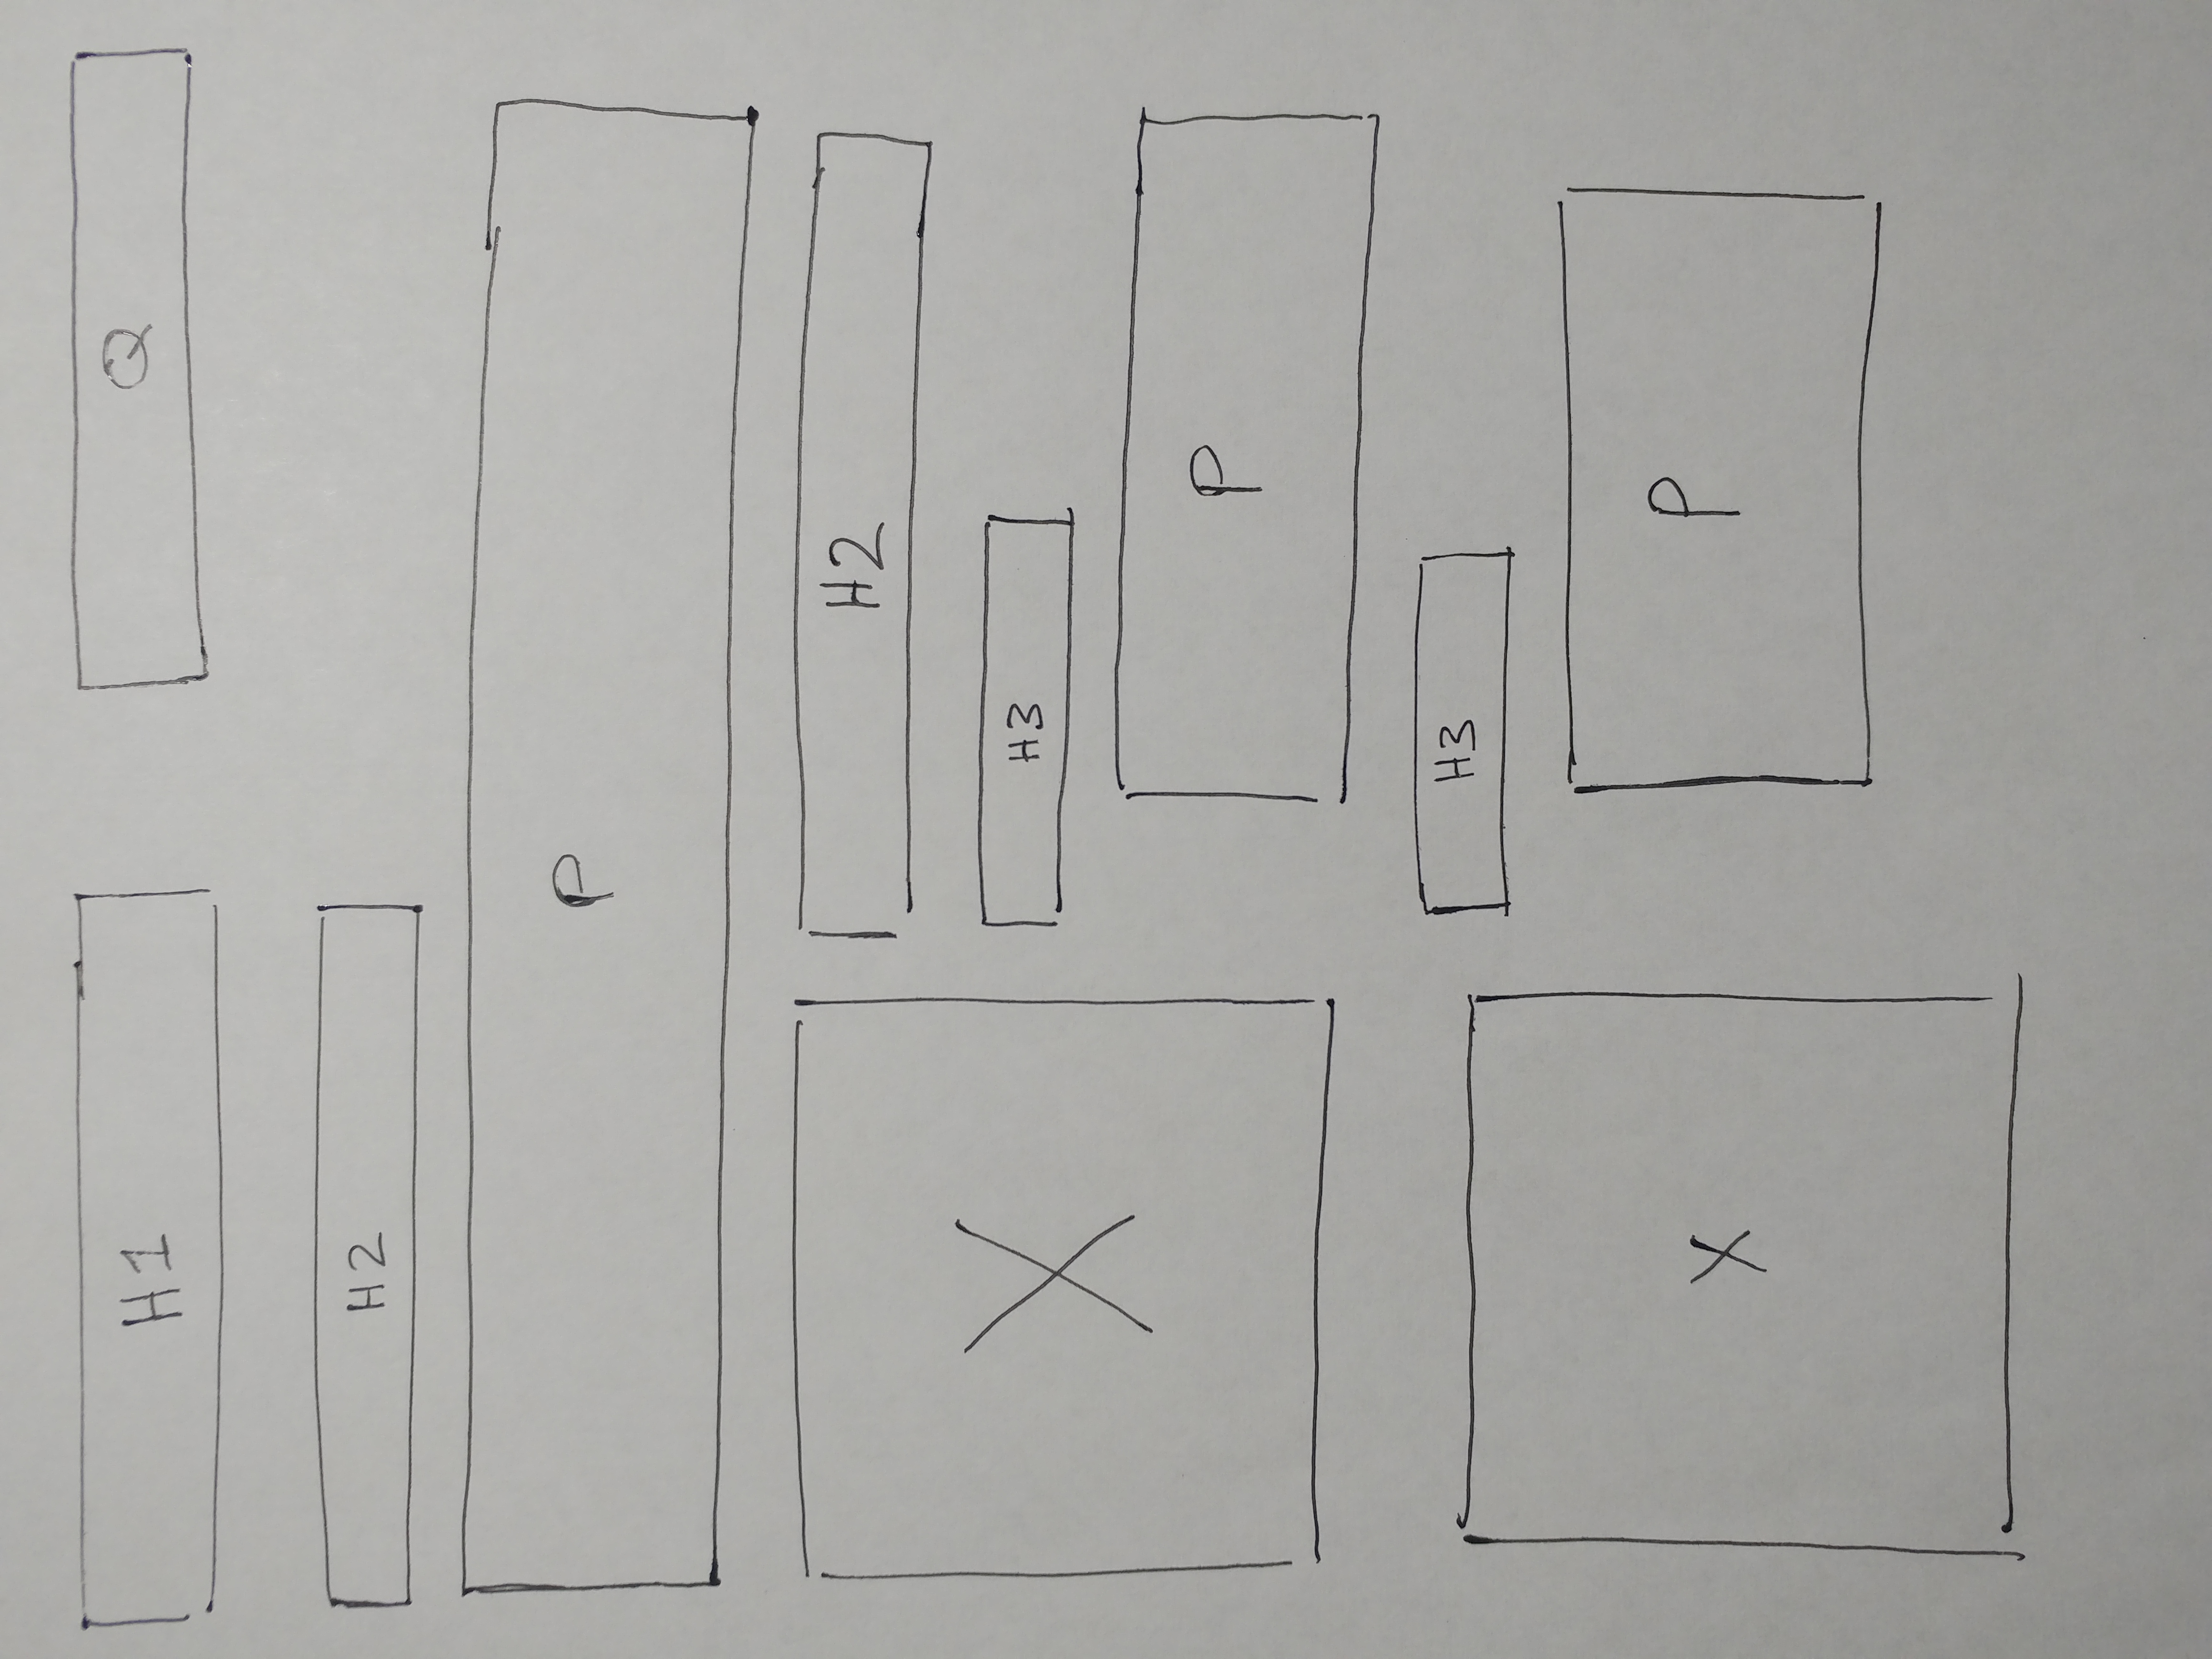 H1
Q
H2
P
X
H2
H3
P
H3
X
P